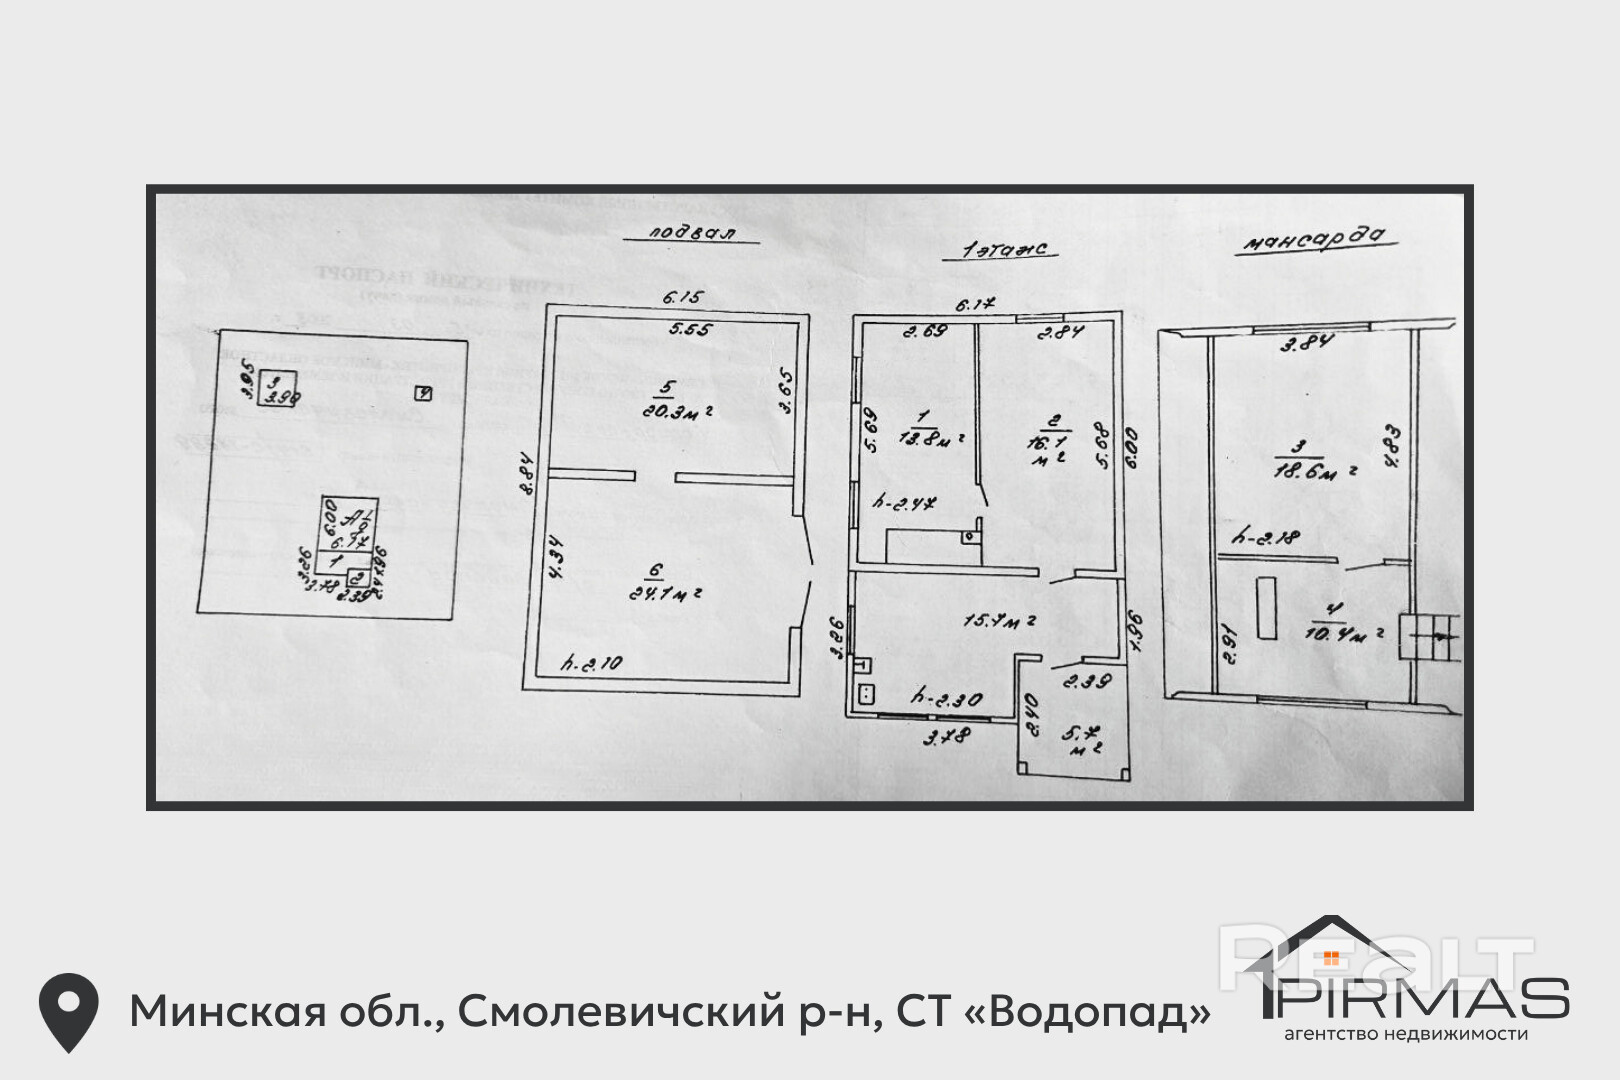 подвал
1 этаж
мансарда
6.15
5.55
5
20.3м²
3.65
8.84
4.34
6
24.1м²
h-2.10
6.17
2.69
2.84
5.69
1
13.8м²
2
16.1
м²
5.68
6.00
h-2.47
3.26
15.7м²
1.96
h-2.30
2.39
2.40
3.78
5.7
м²
3.84
3
18.6м²
4.83
h-2.18
4
10.4м²
2.91
3.95
3
3.98
4
6.00
6.17
1
3.26
3.78
2
2.39
ТЕХНИЧЕСКИЙ ПАСПОРТ
Минская обл., Смолевичский р-н, СТ «Водопад»
REALT
PIRMAS
агентство недвижимости